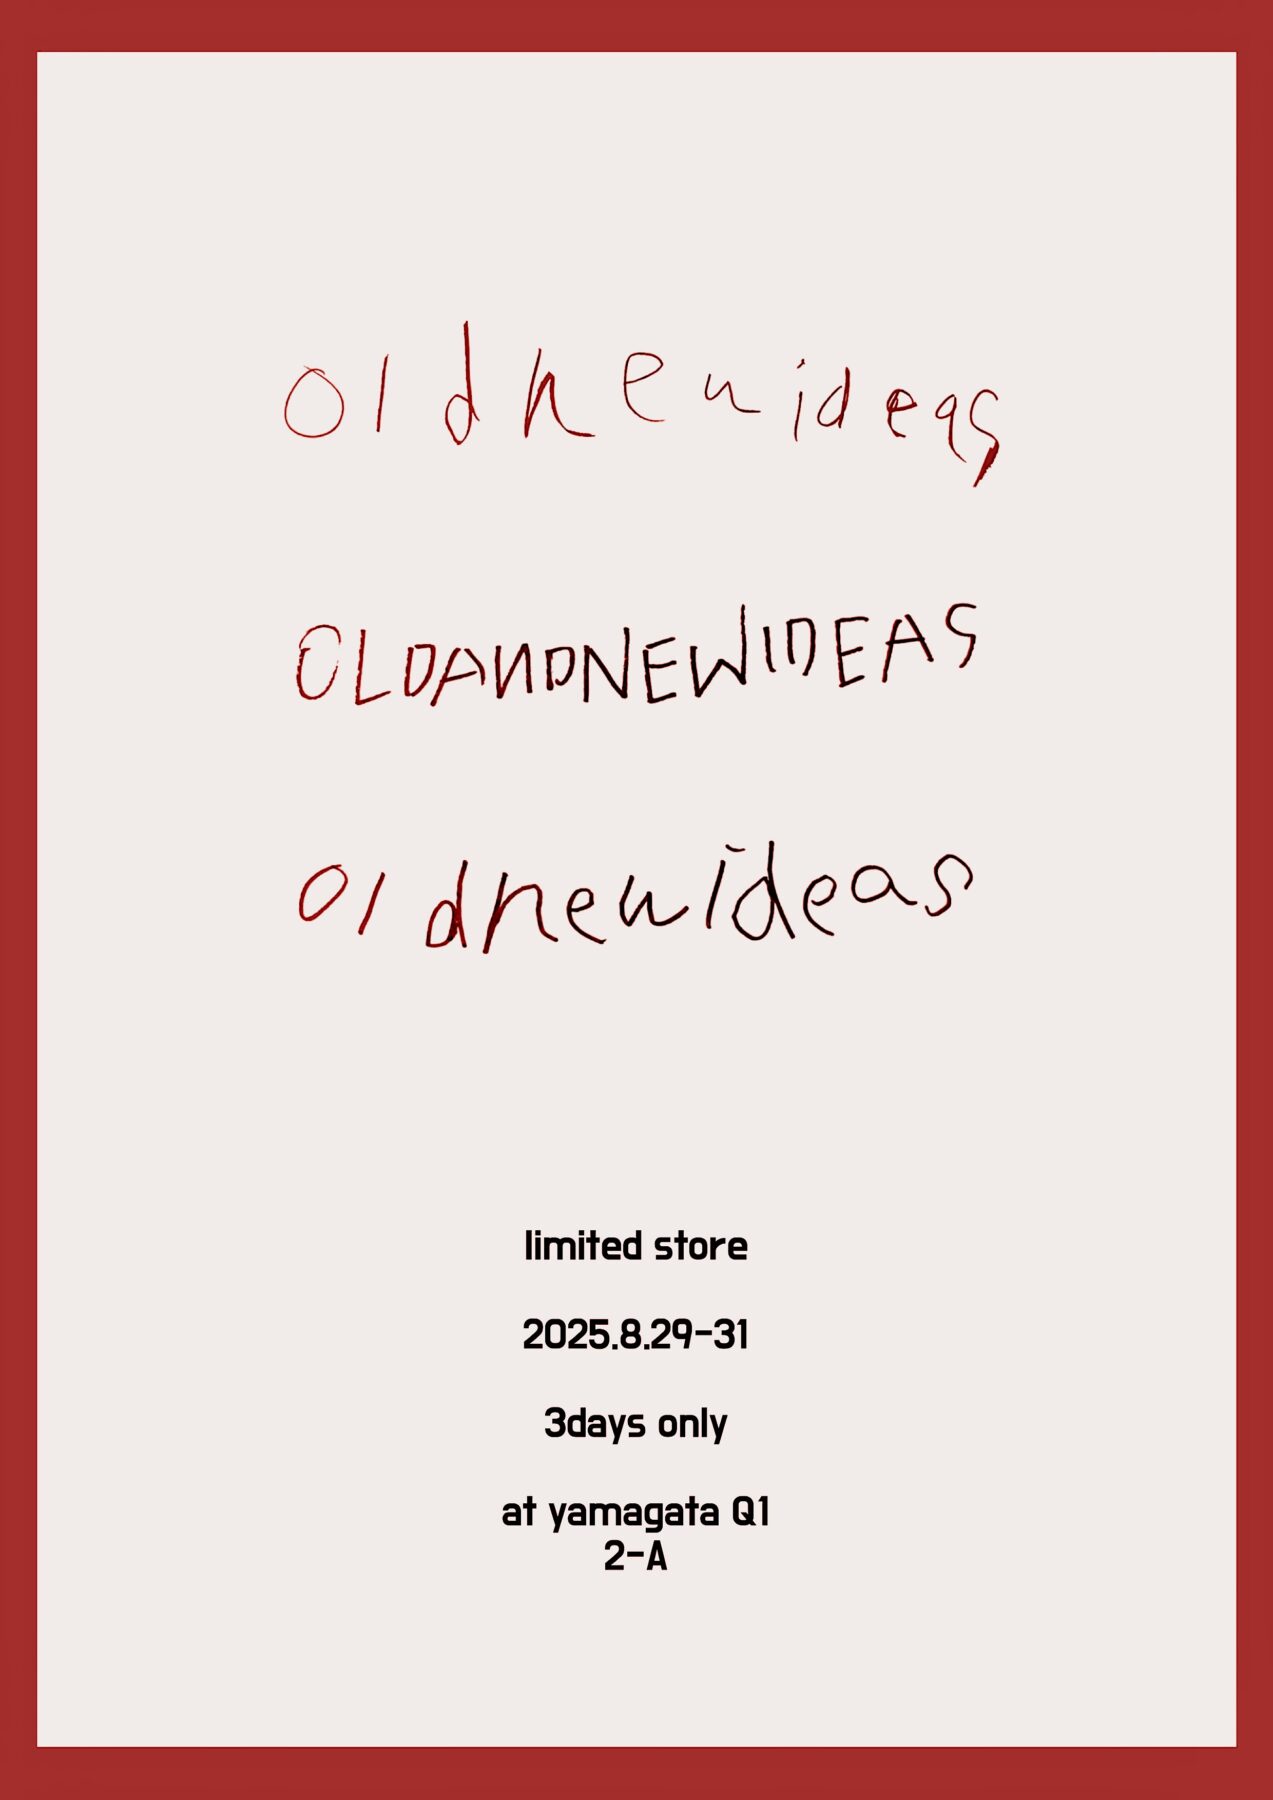 oldnewideas
OLDANDNEWIDEAS
oldnewideas
limited store
2025.8.29-31
3days only
at yamagata Q1
2-A